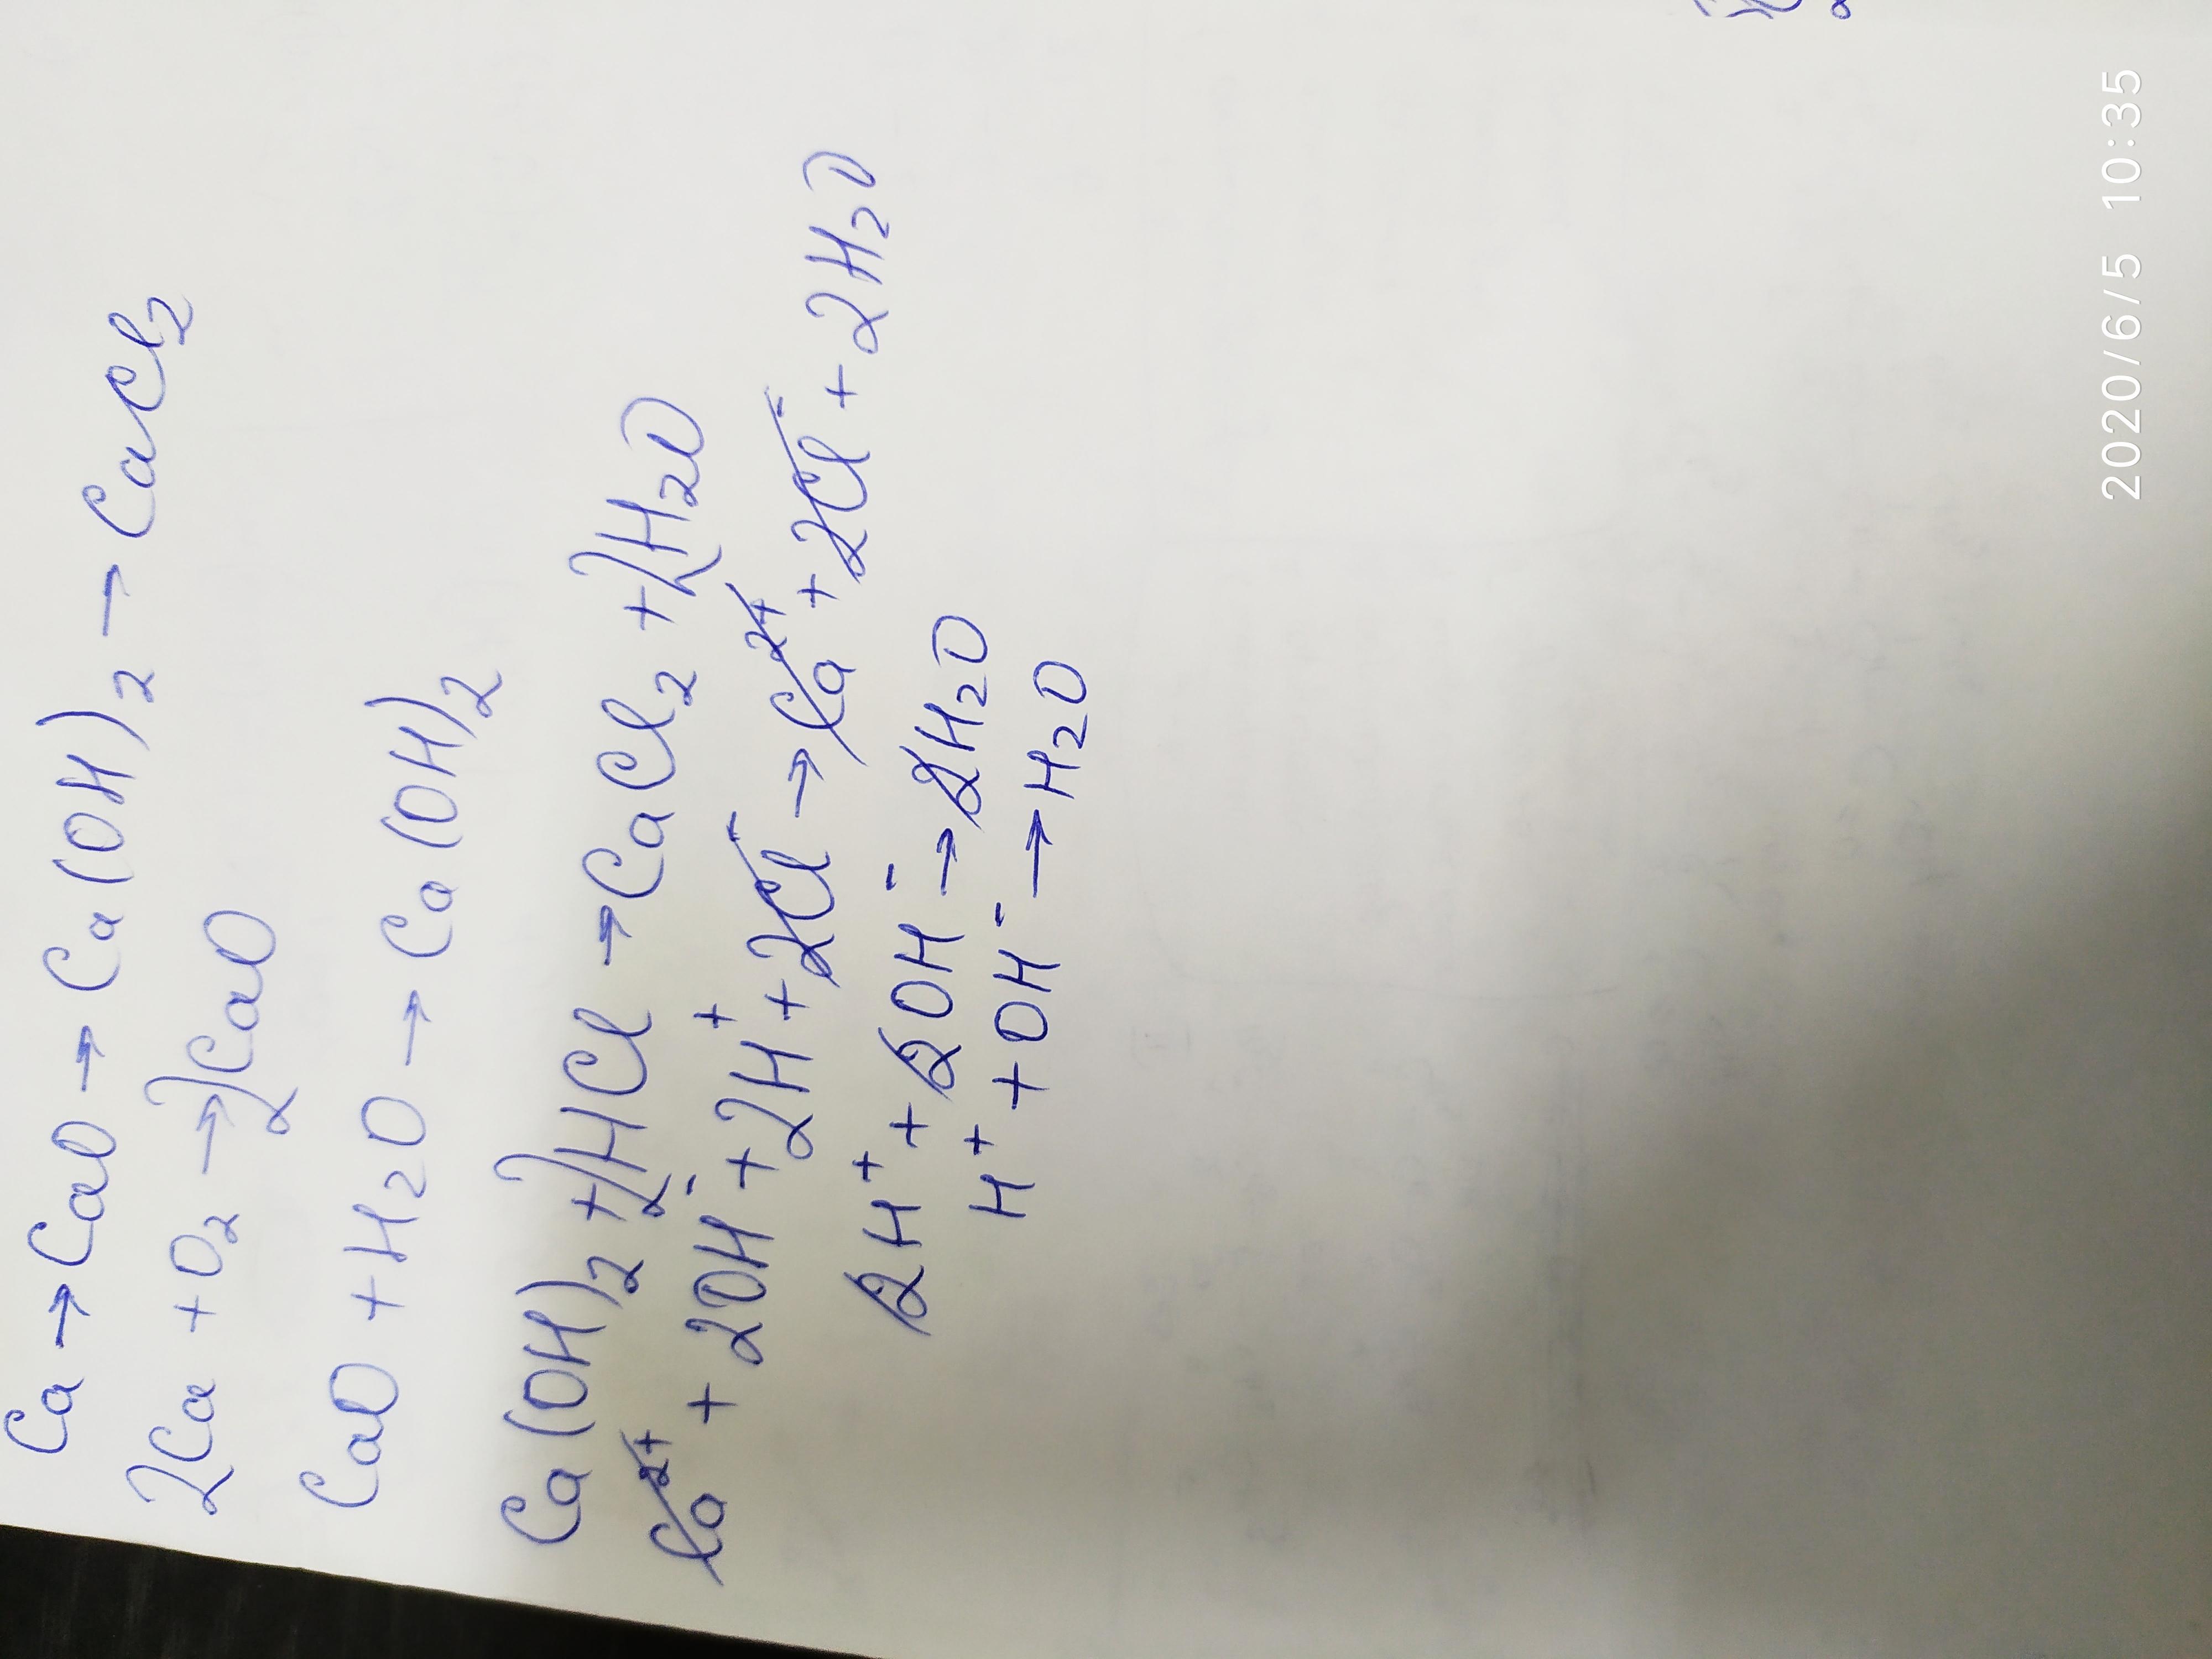 Ca → CaO → Ca(OH)₂ → CaCl₂
2Ca + O₂ → 2CaO
CaO + H₂O → Ca(OH)₂
Ca(OH)₂ + 2HCl → CaCl₂ + 2H₂O
Ca²⁺ + 2OH⁻ + 2H⁺ + 2Cl⁻ → Ca²⁺ + 2Cl⁻ + 2H₂O
2H⁺ + 2OH⁻ → 2H₂O
H⁺ + OH⁻ → H₂O
2020/6/5 10:35